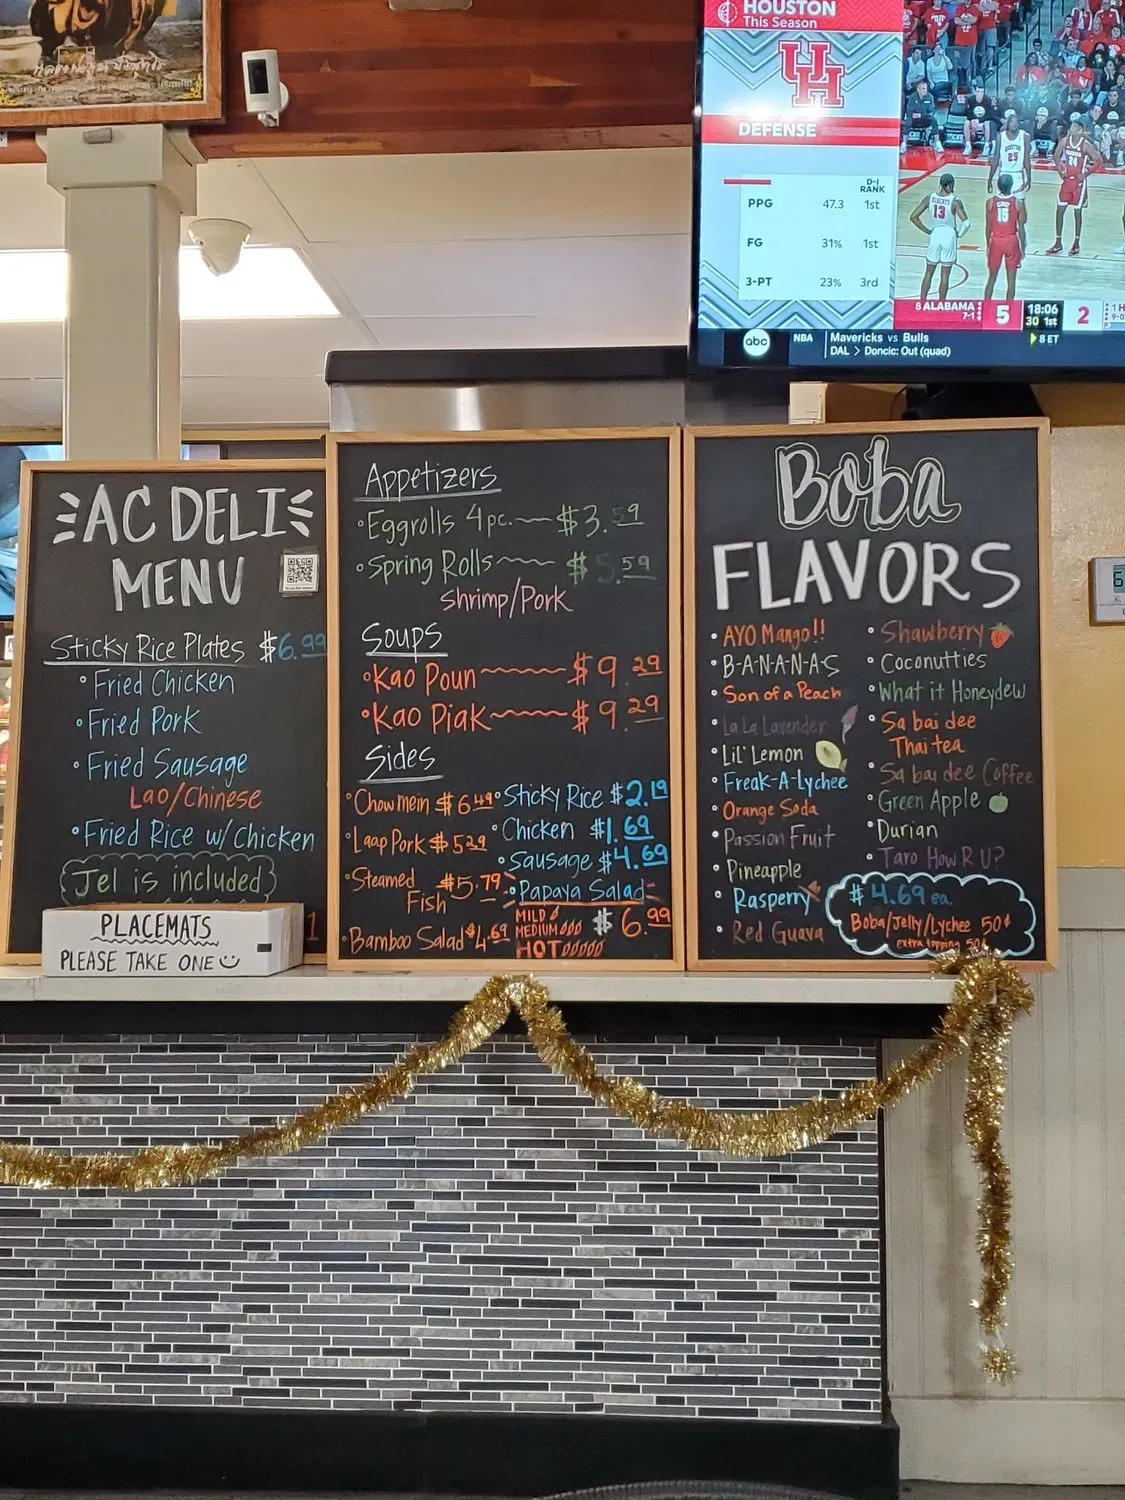 HOUSTON
This Season
UH
DEFENSE
D-I
RANK
PPG 47.3 1st
FG 31% 1st
3-PT 23% 3rd
25
24
13
15
8 ALABAMA 5
7-1
18:06
30 1st
2
9-0
8 ET
abc NBA Mavericks vs Bulls
DAL > Doncic: Out (quad)
AC DELI
MENU
Sticky Rice Plates $6.99
• Fried Chicken
• Fried Pork
• Fried Sausage
Lao/Chinese
• Fried Rice w/ Chicken
Jel is included
PLACEMATS
PLEASE TAKE ONE
Appetizers
• Eggrolls 4pc. $3.59
• Spring Rolls $5.59
Shrimp/Pork
Soups
• Kao Poun $9.29
• Kao Piak $9.29
Sides
• Chowmein $6.49
• Laap Pork $5.29
• Steamed Fish $5.79
• Bamboo Salad $4.69
• Sticky Rice $2.19
• Chicken $1.69
• Sausage $4.69
• Papaya Salad
MILD
MEDIUM
HOT
$6.99
Boba
FLAVORS
• AYO Mango!!
• B-A-N-A-N-A-S
• Son of a Peach
• La La Lavender
• Lil' Lemon
• Freak-A-Lychee
• Orange Soda
• Passion Fruit
• Pineapple
• Rasperry
• Red Guava
• Shawberry
• Coconutties
• What it Honeydew
• Sa bai dee
Thai tea
• Sa bai dee Coffee
• Green Apple
• Durian
• Taro How R U?
$4.69 ea.
Boba/Jelly/Lychee 50¢
extra topping 50¢